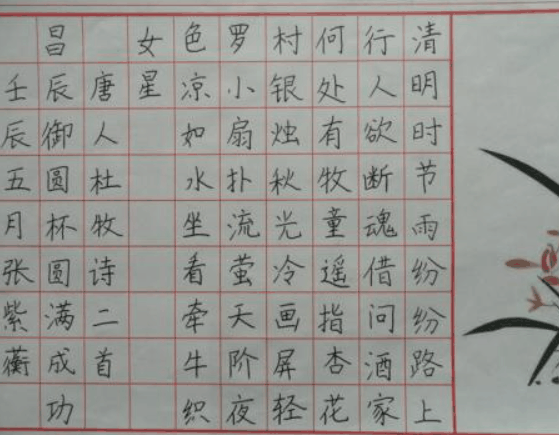 清明时节雨纷纷路上
行人欲断魂借问酒家
何处有牧童遥指杏花
村银烛秋光冷画屏轻
罗小扇扑流萤天阶夜
色凉如水坐看牵牛织
女星
唐人杜牧诗二首
昌辰御圆杯圆满成功
壬辰五月张紫蘅